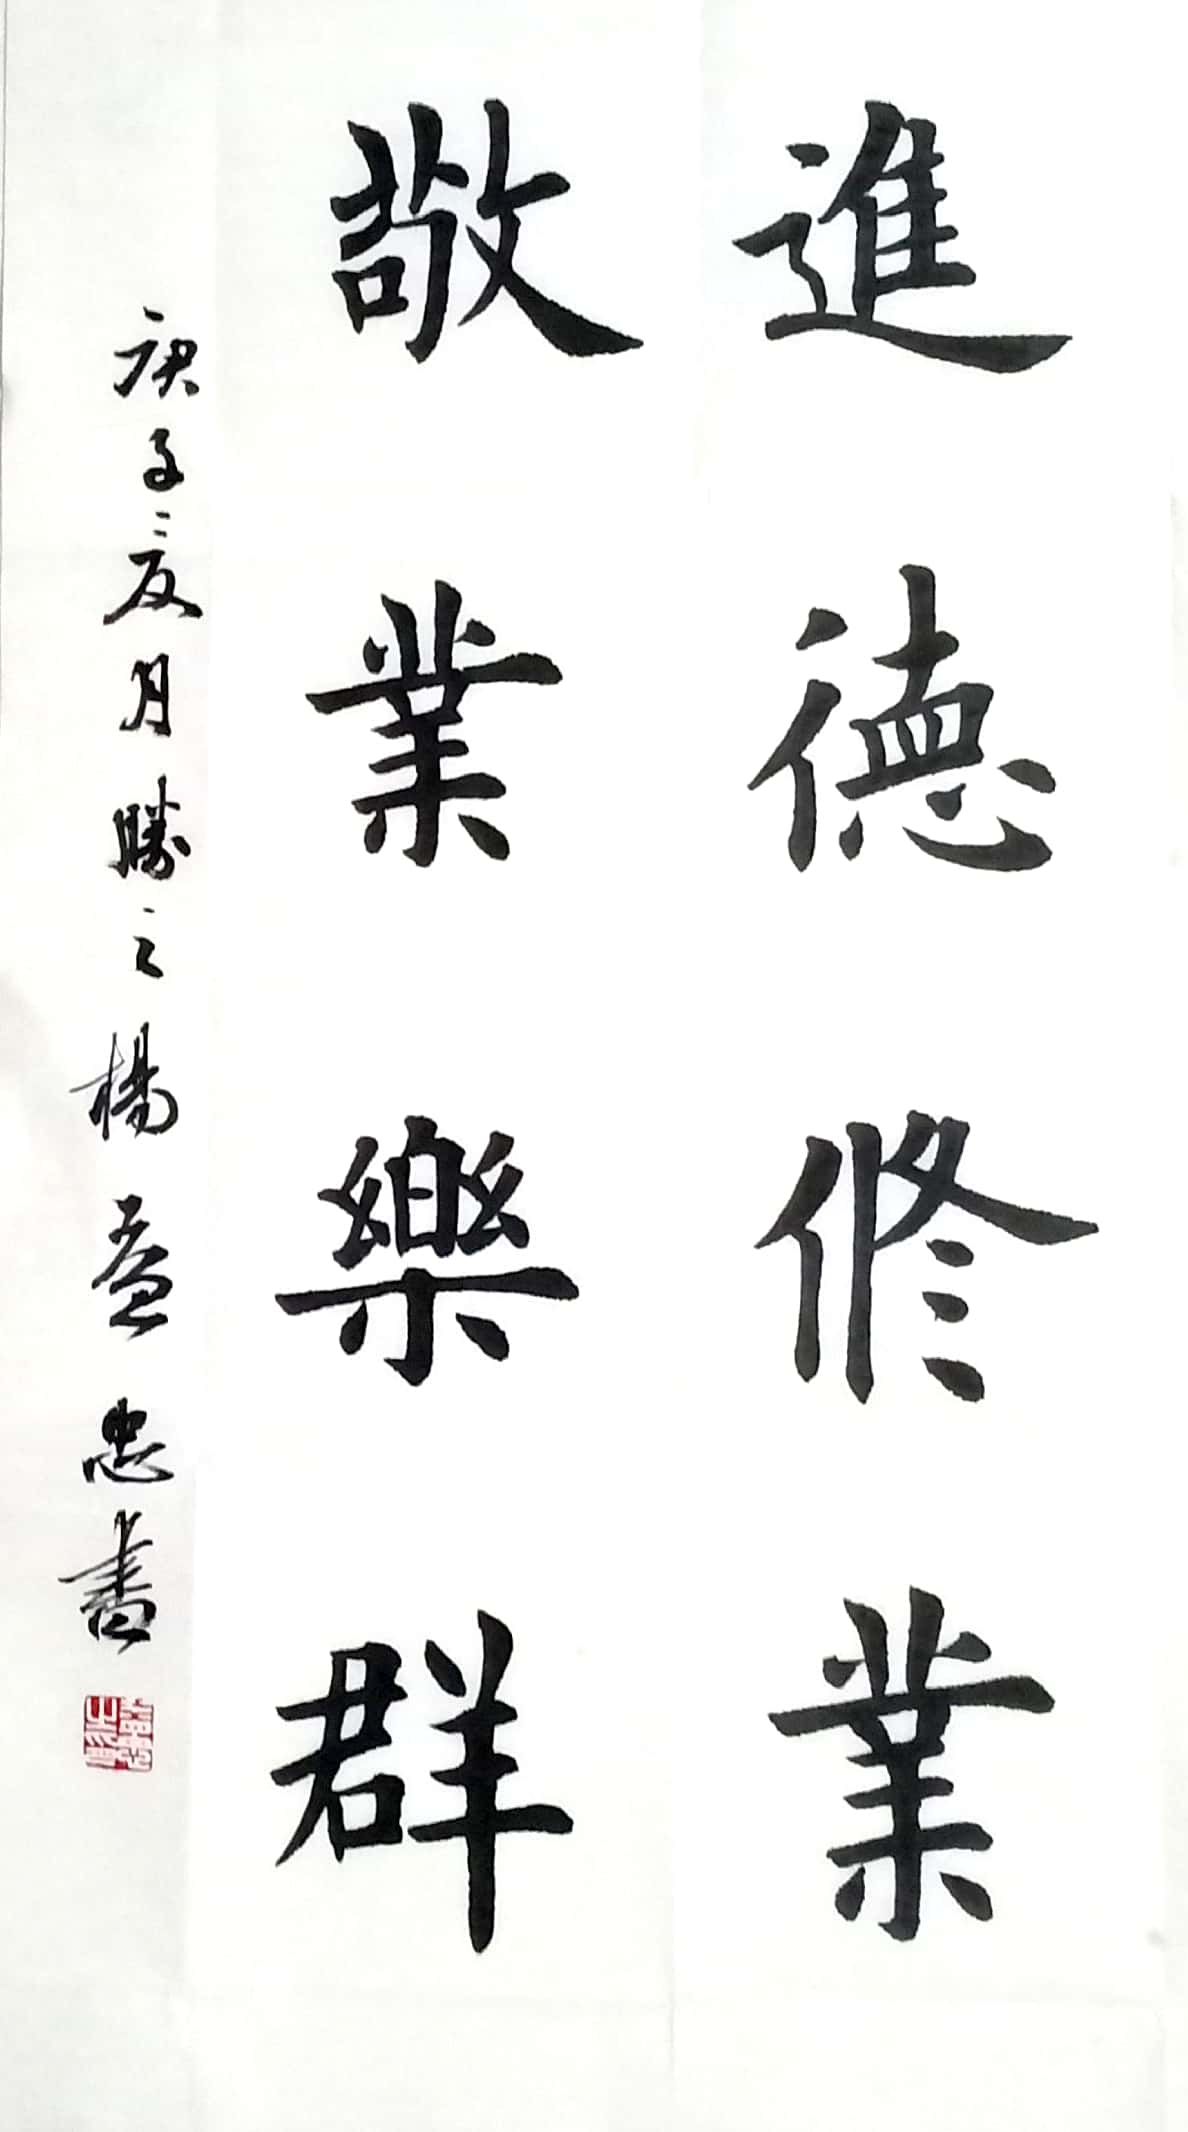 進德修業
敬業樂群
庚子夏月勝之楊益忠書